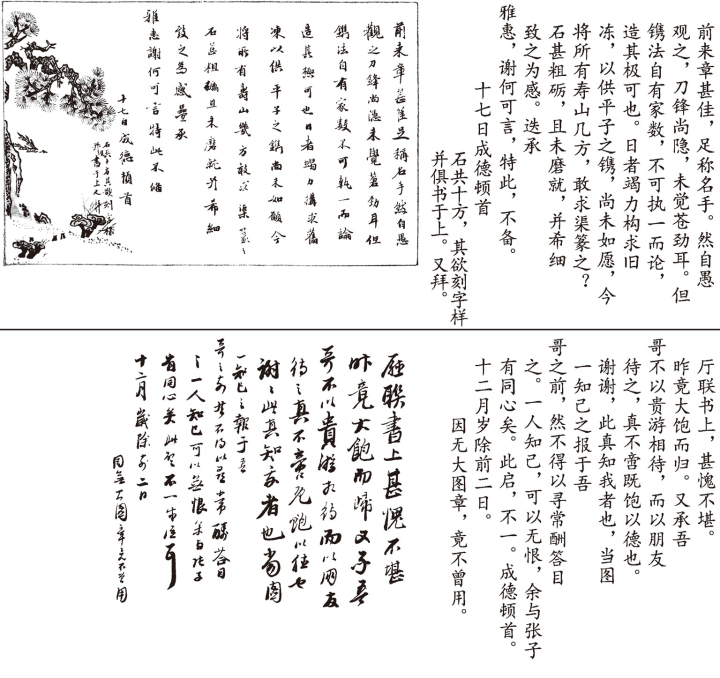 前来章甚佳，足称名手。然自愚
观之，刀锋尚隐，未觉苍劲耳。但
镌法自有家数，不可执一而论，
造其极可也。日者竭力构求旧
冻，以供平子之镌，尚未如愿，今
将所有寿山几方，敢求渠篆之？
石甚粗砺，且未磨就，并希细
致之为感。迭承
雅惠，谢何可言，特此，不备。
十七日成德顿首
石共十方，其欲刻字样
并俱书于上。又拜。
前来章甚佳足稱名手然自愚
觀之刀鋒尚隱未覺蒼勁耳但
鐫法自有家數不可執一而論
造其極可也日者竭力構求舊
凍以供平子之鐫尚未如願今
將所有壽山幾方敢求渠篆之
石甚粗礪且未磨就并希細
致之為感疊承
雅惠謝何可言特此不備
十七日成德頓首
石共十方其欲刻字樣
并俱書于上又拜
厅联书上，甚愧不堪。
昨竟大饱而归。又承吾
哥不以贵游相待，而以朋友
待之，真不啻既饱以德也。
谢谢，此真知我者也，当图
一知己之报于吾
哥之前，然不得以寻常酬答目
之。一人知己，可以无恨，余与张子
有同心矣。此启，不一。成德顿首。
十二月岁除前二日。
因无大图章，竟不曾用。
厛聯書上甚愧不堪
昨竟大飽而歸又承吾
哥不以貴游相待而以朋友
待之真不啻既飽以德也
謝謝此真知我者也當圖
一知己之報于吾
哥之前然不得以尋常酬答目
之一人知己可以無恨余與張子
有同心矣此啟不一成德頓首
十二月歲除前二日
因無大圖章竟不曾用